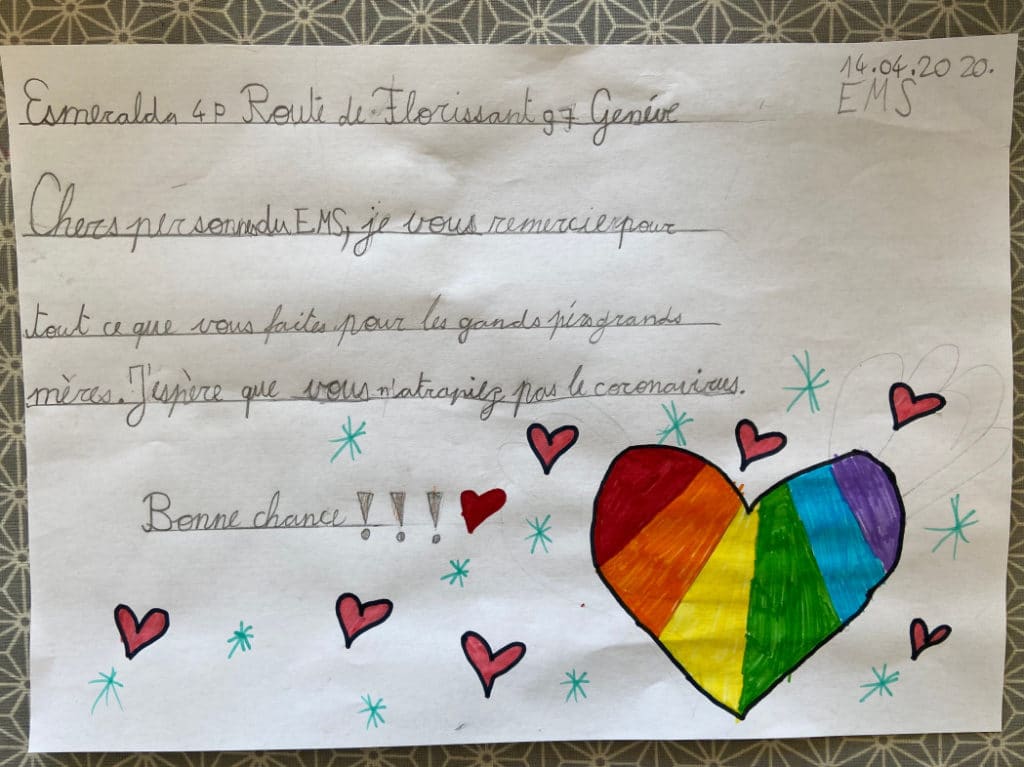 14.04.20 20.
EMS
Esmeralda 4P Route de Florissant 97 Genève
Chers personnes du EMS, je vous remercier pour
tout ce que vous faites pour les gands pères grands
mères. J'espère que vous n'atrapiez pas le coronavirus.
Bonne chance !!!